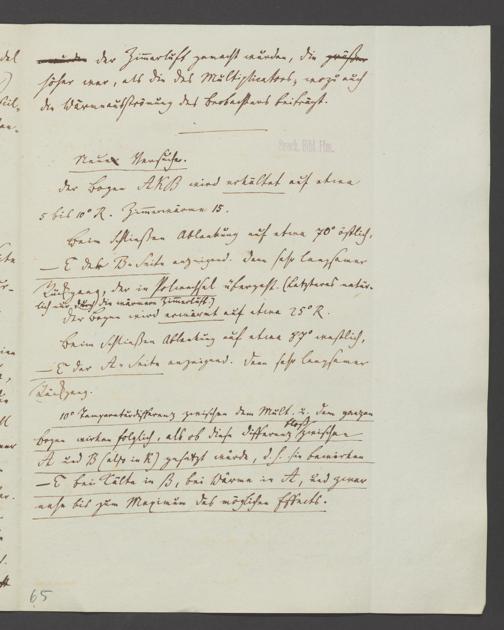 der Zimmerluft gemacht wurden, die
höher war, als die des Multiplicators, wozu auch
die Wärmeausströmung des Beobachters beiträgt.
Neue Versuche.
Der Bogen AKB wird erkältet auf etwa
5 bis 10° R. Zimmerwärme 15.
Beim Schließen Ablenkung auf etwa 70° östlich,
— E der B-Seite anzeigend. Dann sehr langsamer
Rückgang, der in Polwechsel übergeht. (Letzteres natür-
lich nur durch die wärmere Zimmerluft.)
Der Bogen wird erwärmt auf etwa 25° R.
Beim Schließen Ablenkung auf etwa 87° westlich,
— E der A-Seite anzeigend. Dann sehr langsamer
Rückgang.
10° Temperaturdifferenz zwischen dem Mult. u. dem ganzen
Bogen wirken folglich, als ob diese Differenz bloß zwischen
A und B (also in K) gesetzt würde, d. h. sie bewirken
— E bei Kälte in B, bei Wärme in A, und zwar
nahe bis zum Maximum des möglichen Effects.
65